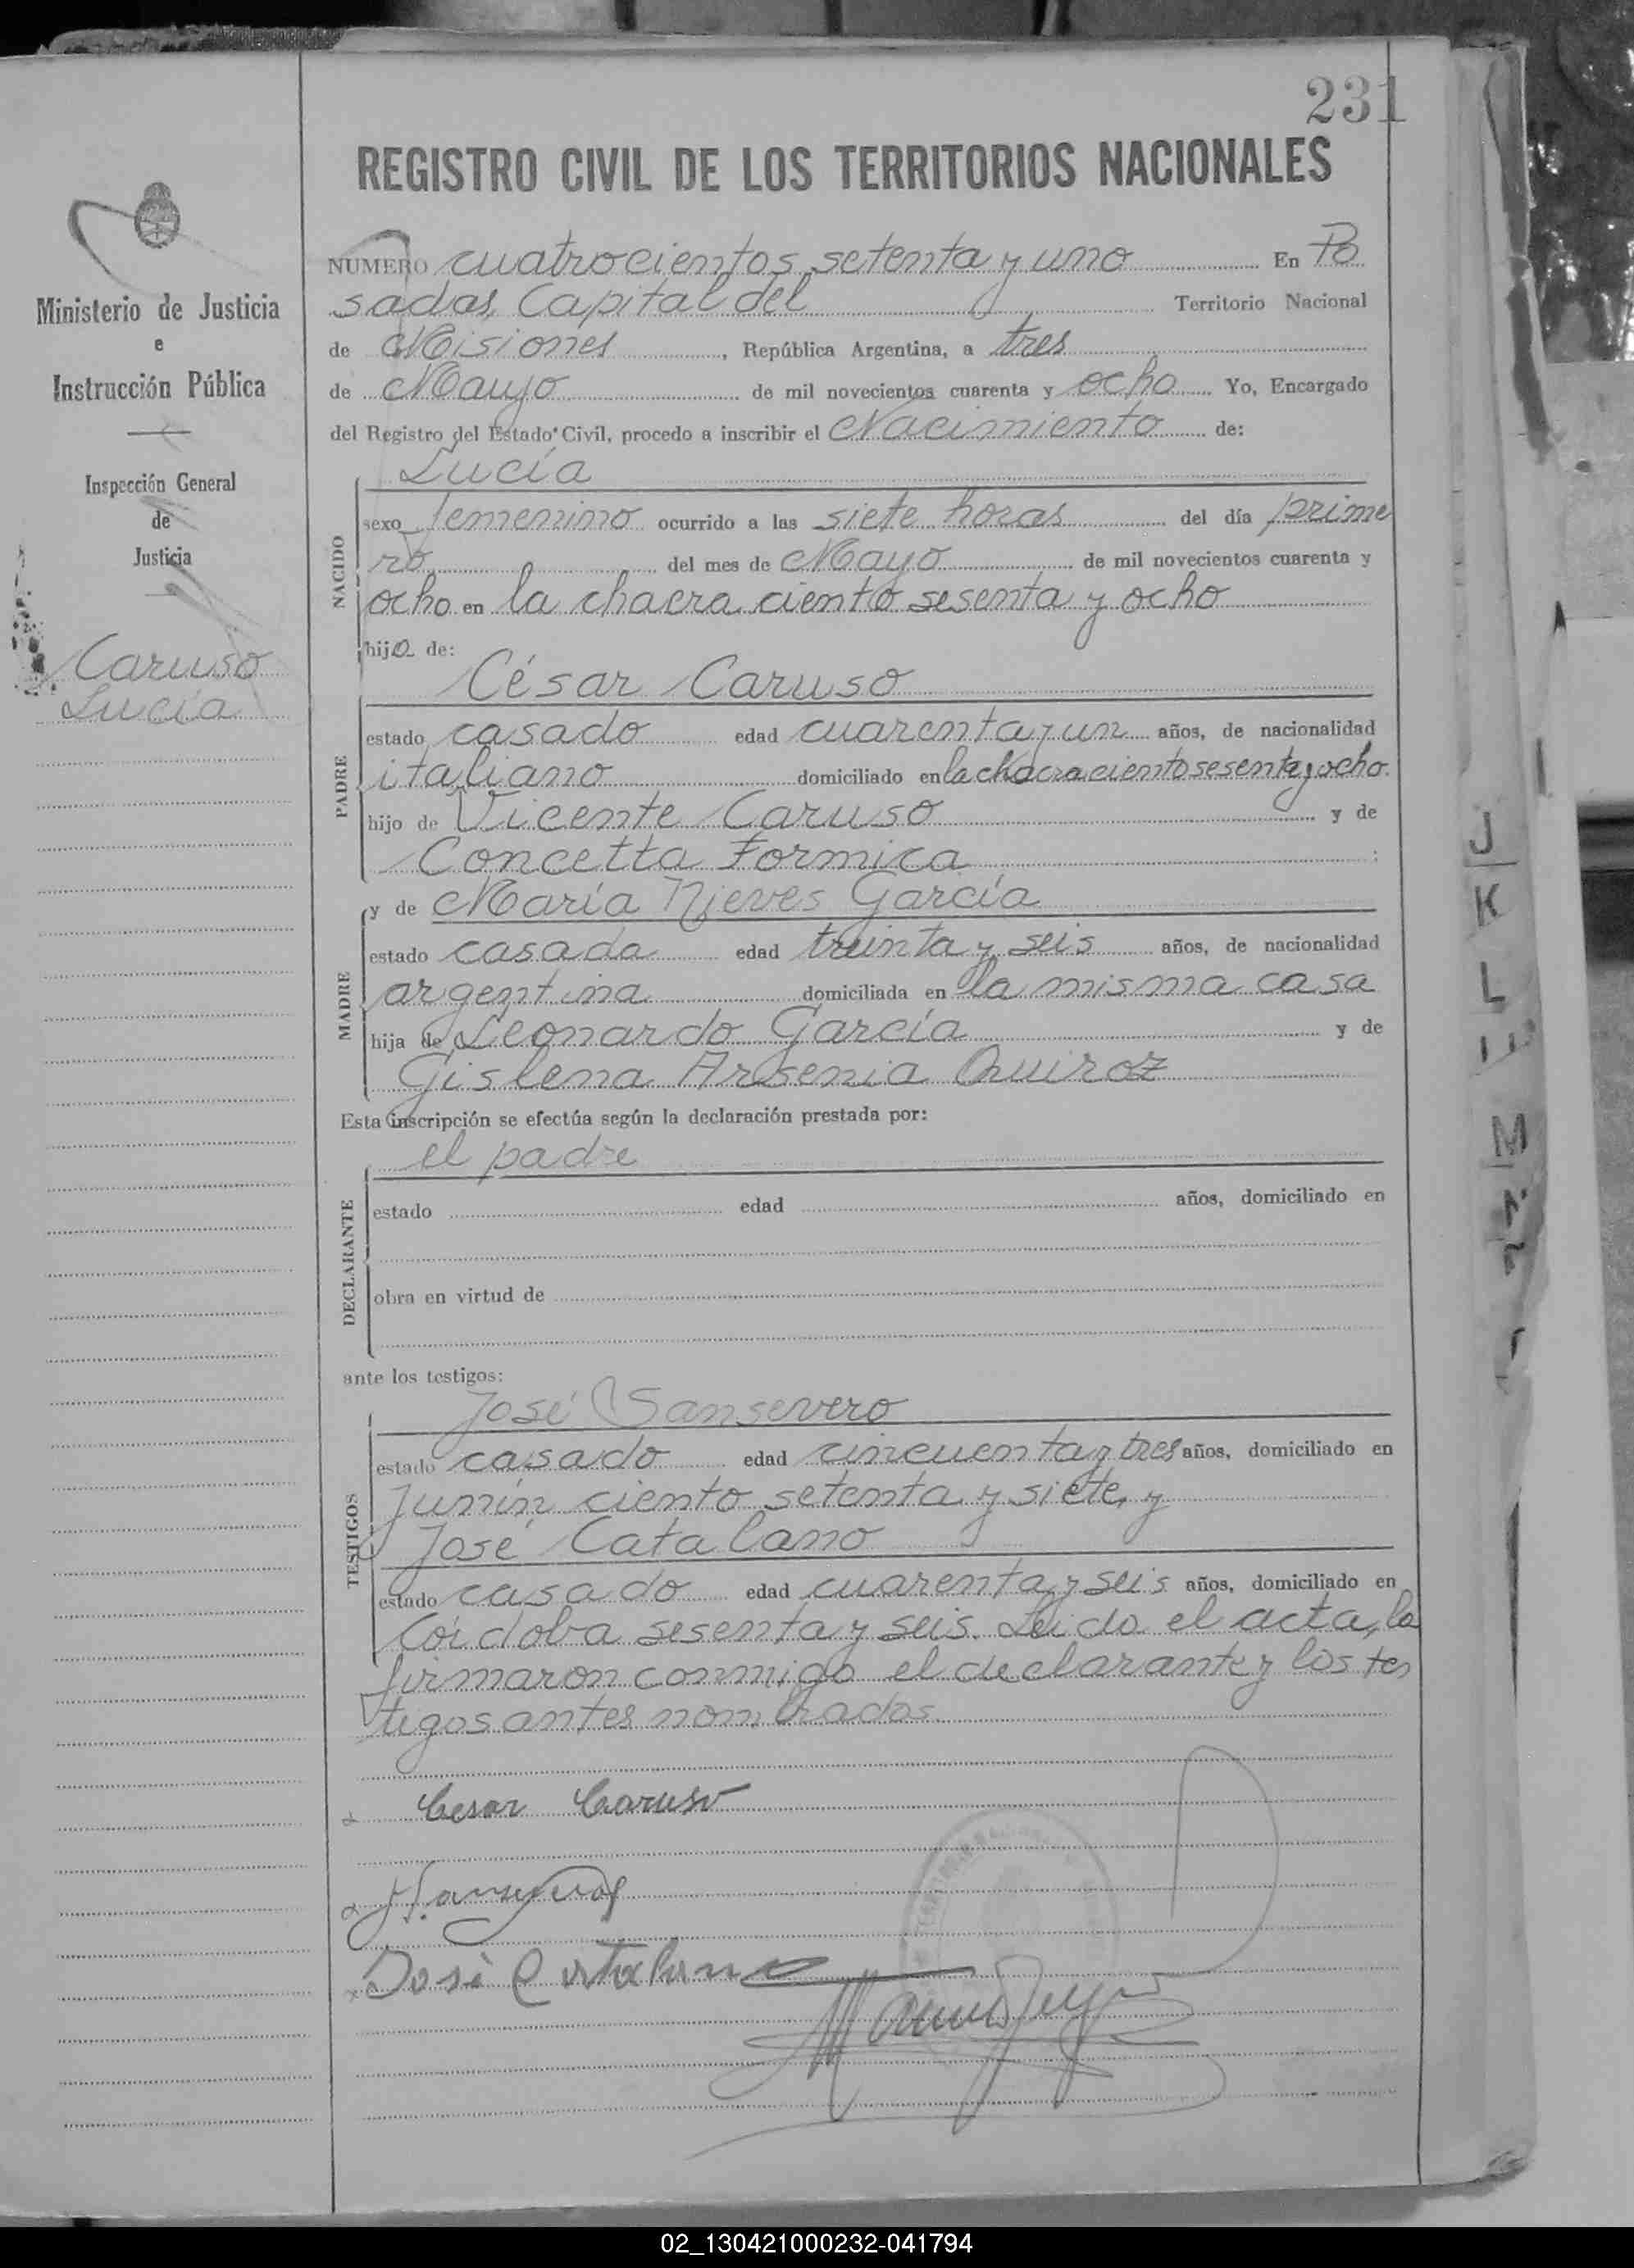 231
REGISTRO CIVIL DE LOS TERRITORIOS NACIONALES
Ministerio de Justicia
e
Instrucción Pública
Inspección General
de
Justicia
Caruso
Lucía
NUMERO cuatrocientos setenta y uno En Po
sadas, Capital del Territorio Nacional
de Misiones, República Argentina, a tres
de Mayo de mil novecientos cuarenta y ocho Yo, Encargado
del Registro del Estado Civil, procedo a inscribir el Nacimiento de:
Lucía
NACIDO
sexo femenino ocurrido a las siete horas del día prime
ro del mes de Mayo de mil novecientos cuarenta y
ocho en la chacra ciento sesenta y ocho
hija de:
César Caruso
PADRE
estado casado edad cuarenta y un años, de nacionalidad
italiano domiciliado en la chacra ciento sesenta y ocho
hijo de Vicente Caruso y de
Concetta Formica ;
y de María Nieves García
MADRE
estado casada edad treinta y seis años, de nacionalidad
argentina domiciliada en la misma casa
hija de Leonardo García y de
Gislena Arsenia Quiroz
Esta inscripción se efectúa según la declaración prestada por:
el padre
DECLARANTE
estado edad años, domiciliado en
obra en virtud de
ante los testigos:
José Sansevero
TESTIGOS
estado casado edad cincuenta y tres años, domiciliado en
Junín ciento setenta y siete, y
José Catalano
estado casado edad cuarenta y seis años, domiciliado en
Córdoba sesenta y seis. Leida el acta, la
firmaron conmigo el declarante y los tes
tigos antes nombrados.
Cesar Caruso
José Catalano
J
K
L
LL
M
N
Ñ
02_130421000232-041794